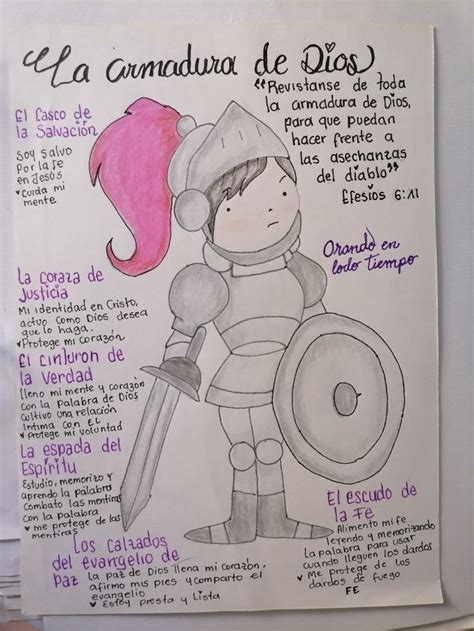 La armadura de Dios
"Revistanse de toda
la armadura de Dios,
para que puedan
hacer frente a
las asechanzas
del diablo"
Efesios 6:11
El Casco de
la Salvación
Soy salvo
Por la fe
en Jesús
Cuida mi
mente
Orando en
todo tiempo
La coraza de
Justicia
Mi identidad en Cristo,
actuo como Dios desea
que lo haga.
Protege mi corazón
El cinturon de
la Verdad
lleno mi mente y corazón
con la Palabra de Dios
Cultivo una relación
Intima con EL
Protege mi voluntad
La espada del
Espíritu
Estudio, memorizo y
aprendo la palabra
Combato las mentiras
con la palabra
me protege de las
mentiras
Los calzados
del evangelio de
Paz
La paz de Dios llena mi corazón,
afirmo mis pies y comparto el
evangelio
Estoy presta y lista
El escudo de
la Fe
Alimento mi fe
leyendo y memorizando
la palabra para usar
cuando lleguen los dardos
Me protege de los
dardos de fuego
FE